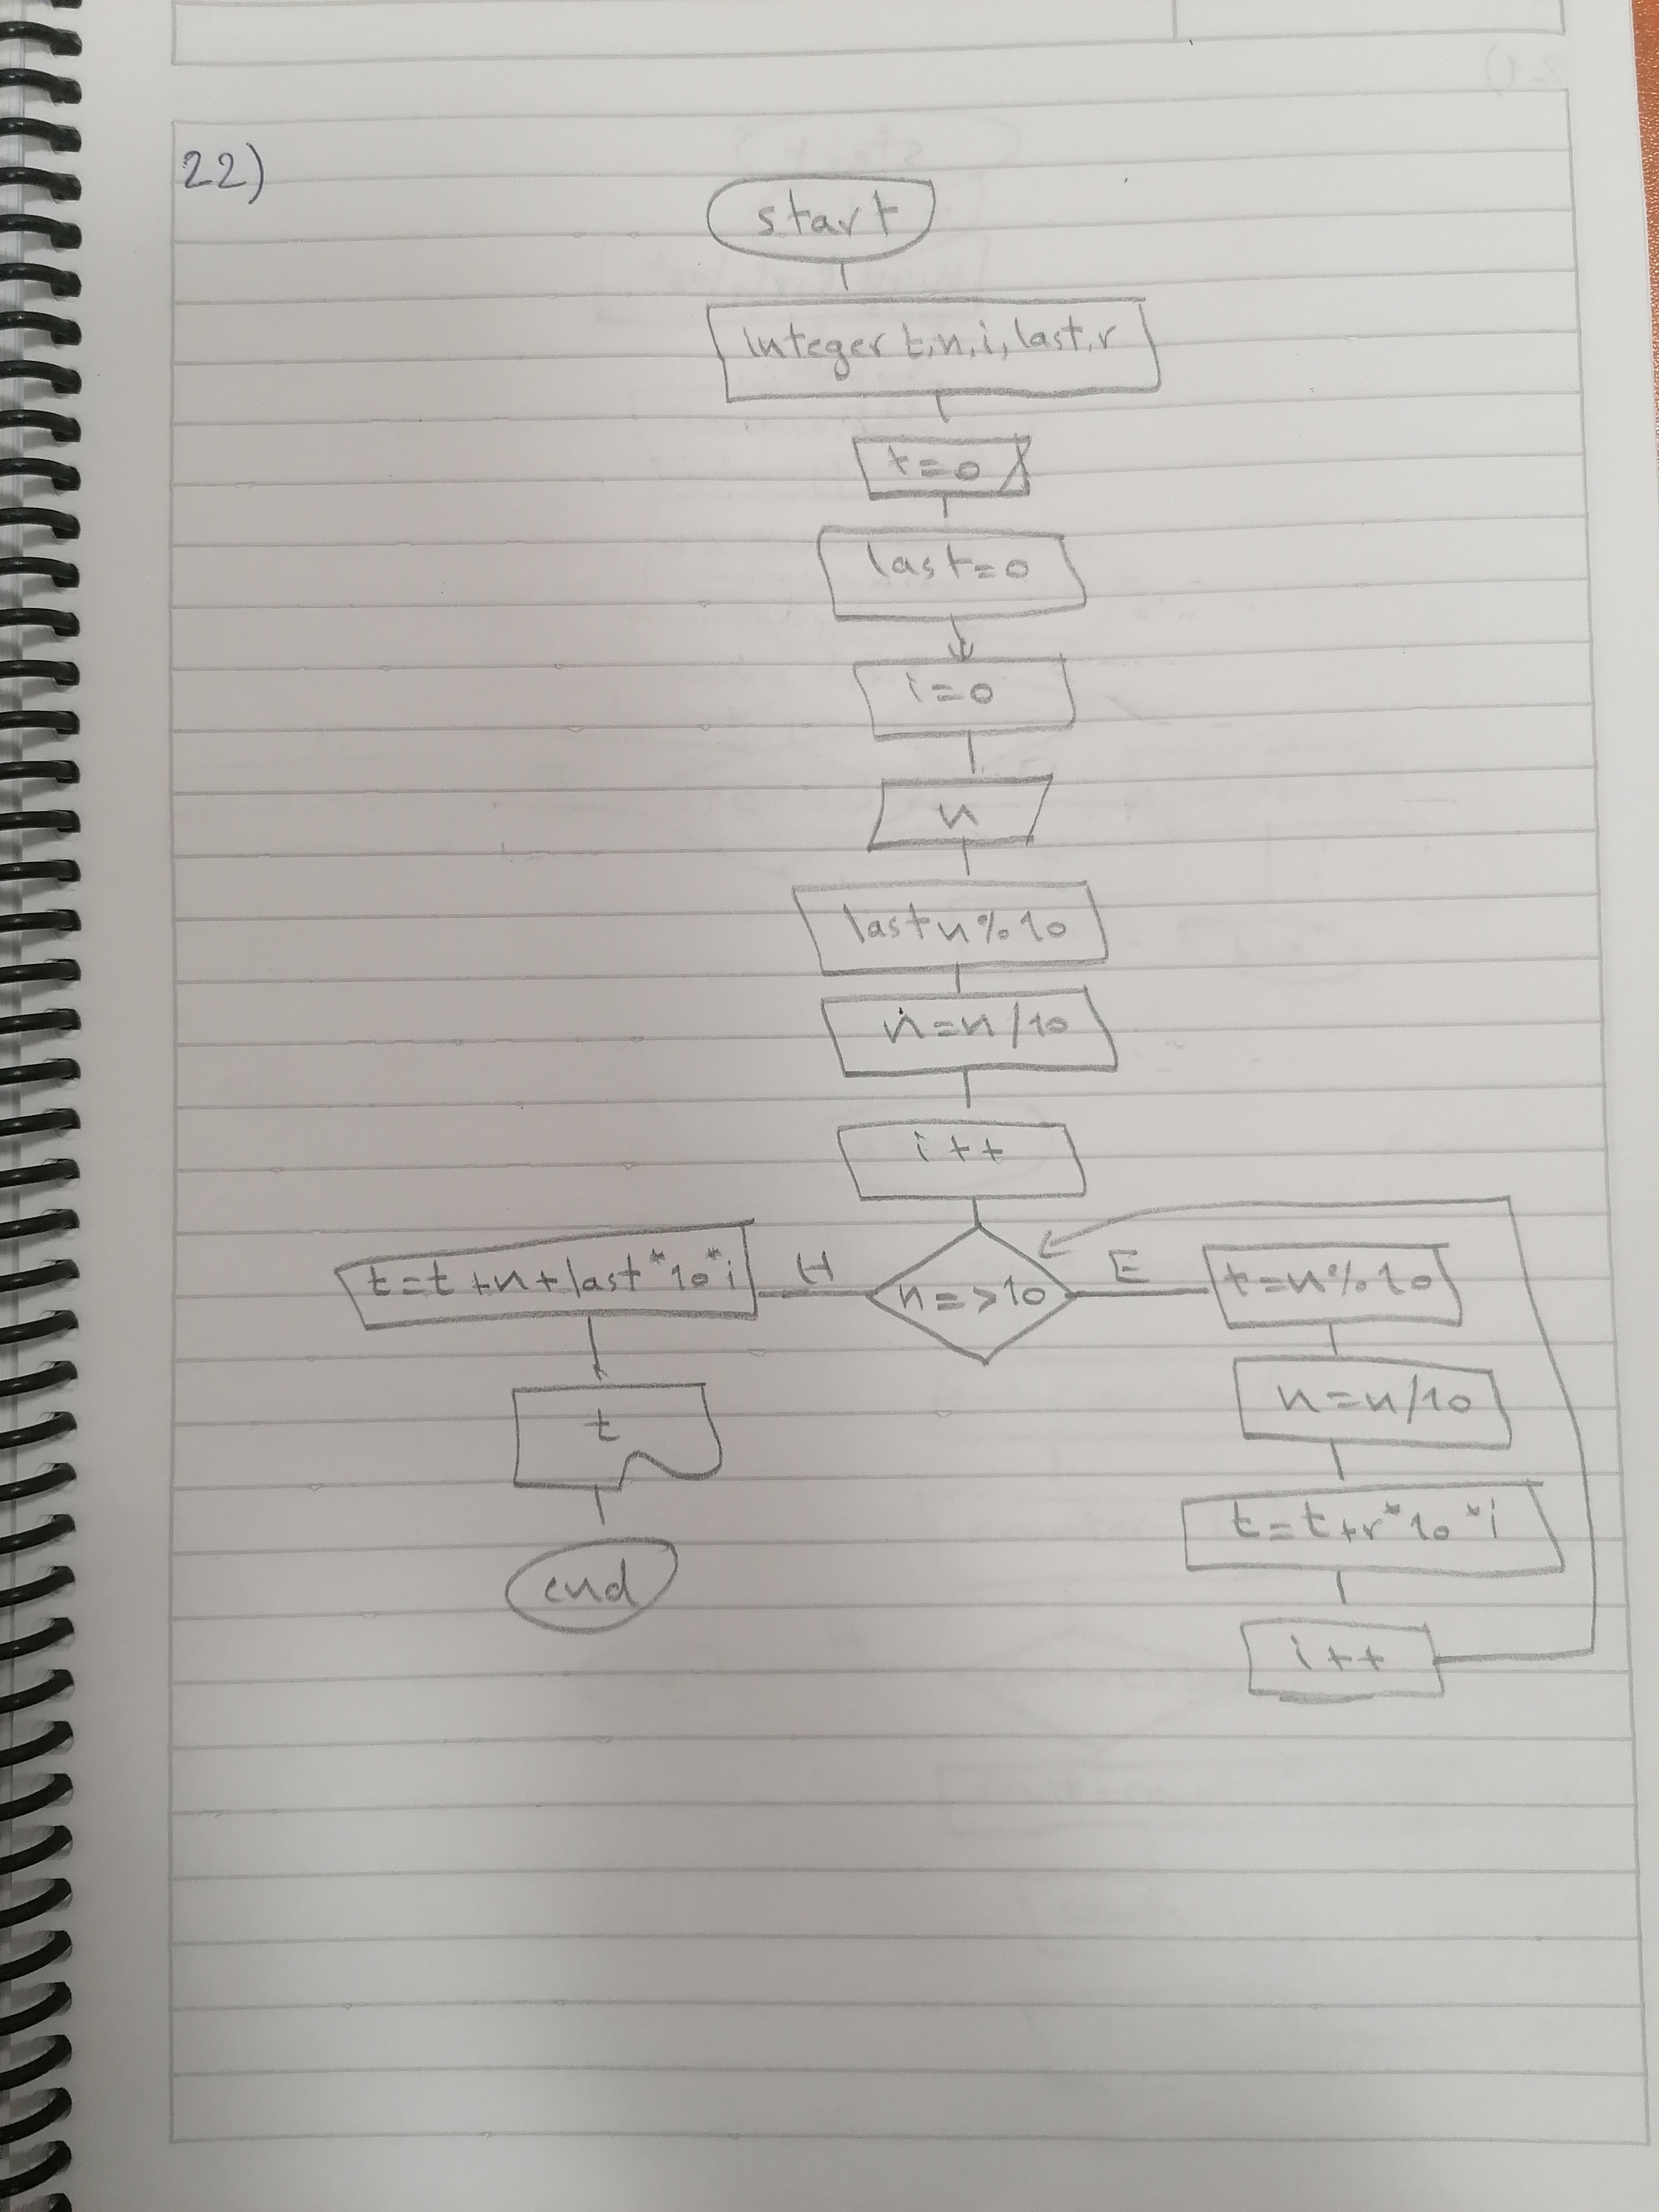 22)
start
Integer t,n,i,last,r
t=0
last=0
i=0
n
last n%10
n=n/10
i++
t=t+n+last*10*i H n=>10 E t=n%10
n=n/10
t
t=t+r*10*i
end
i++